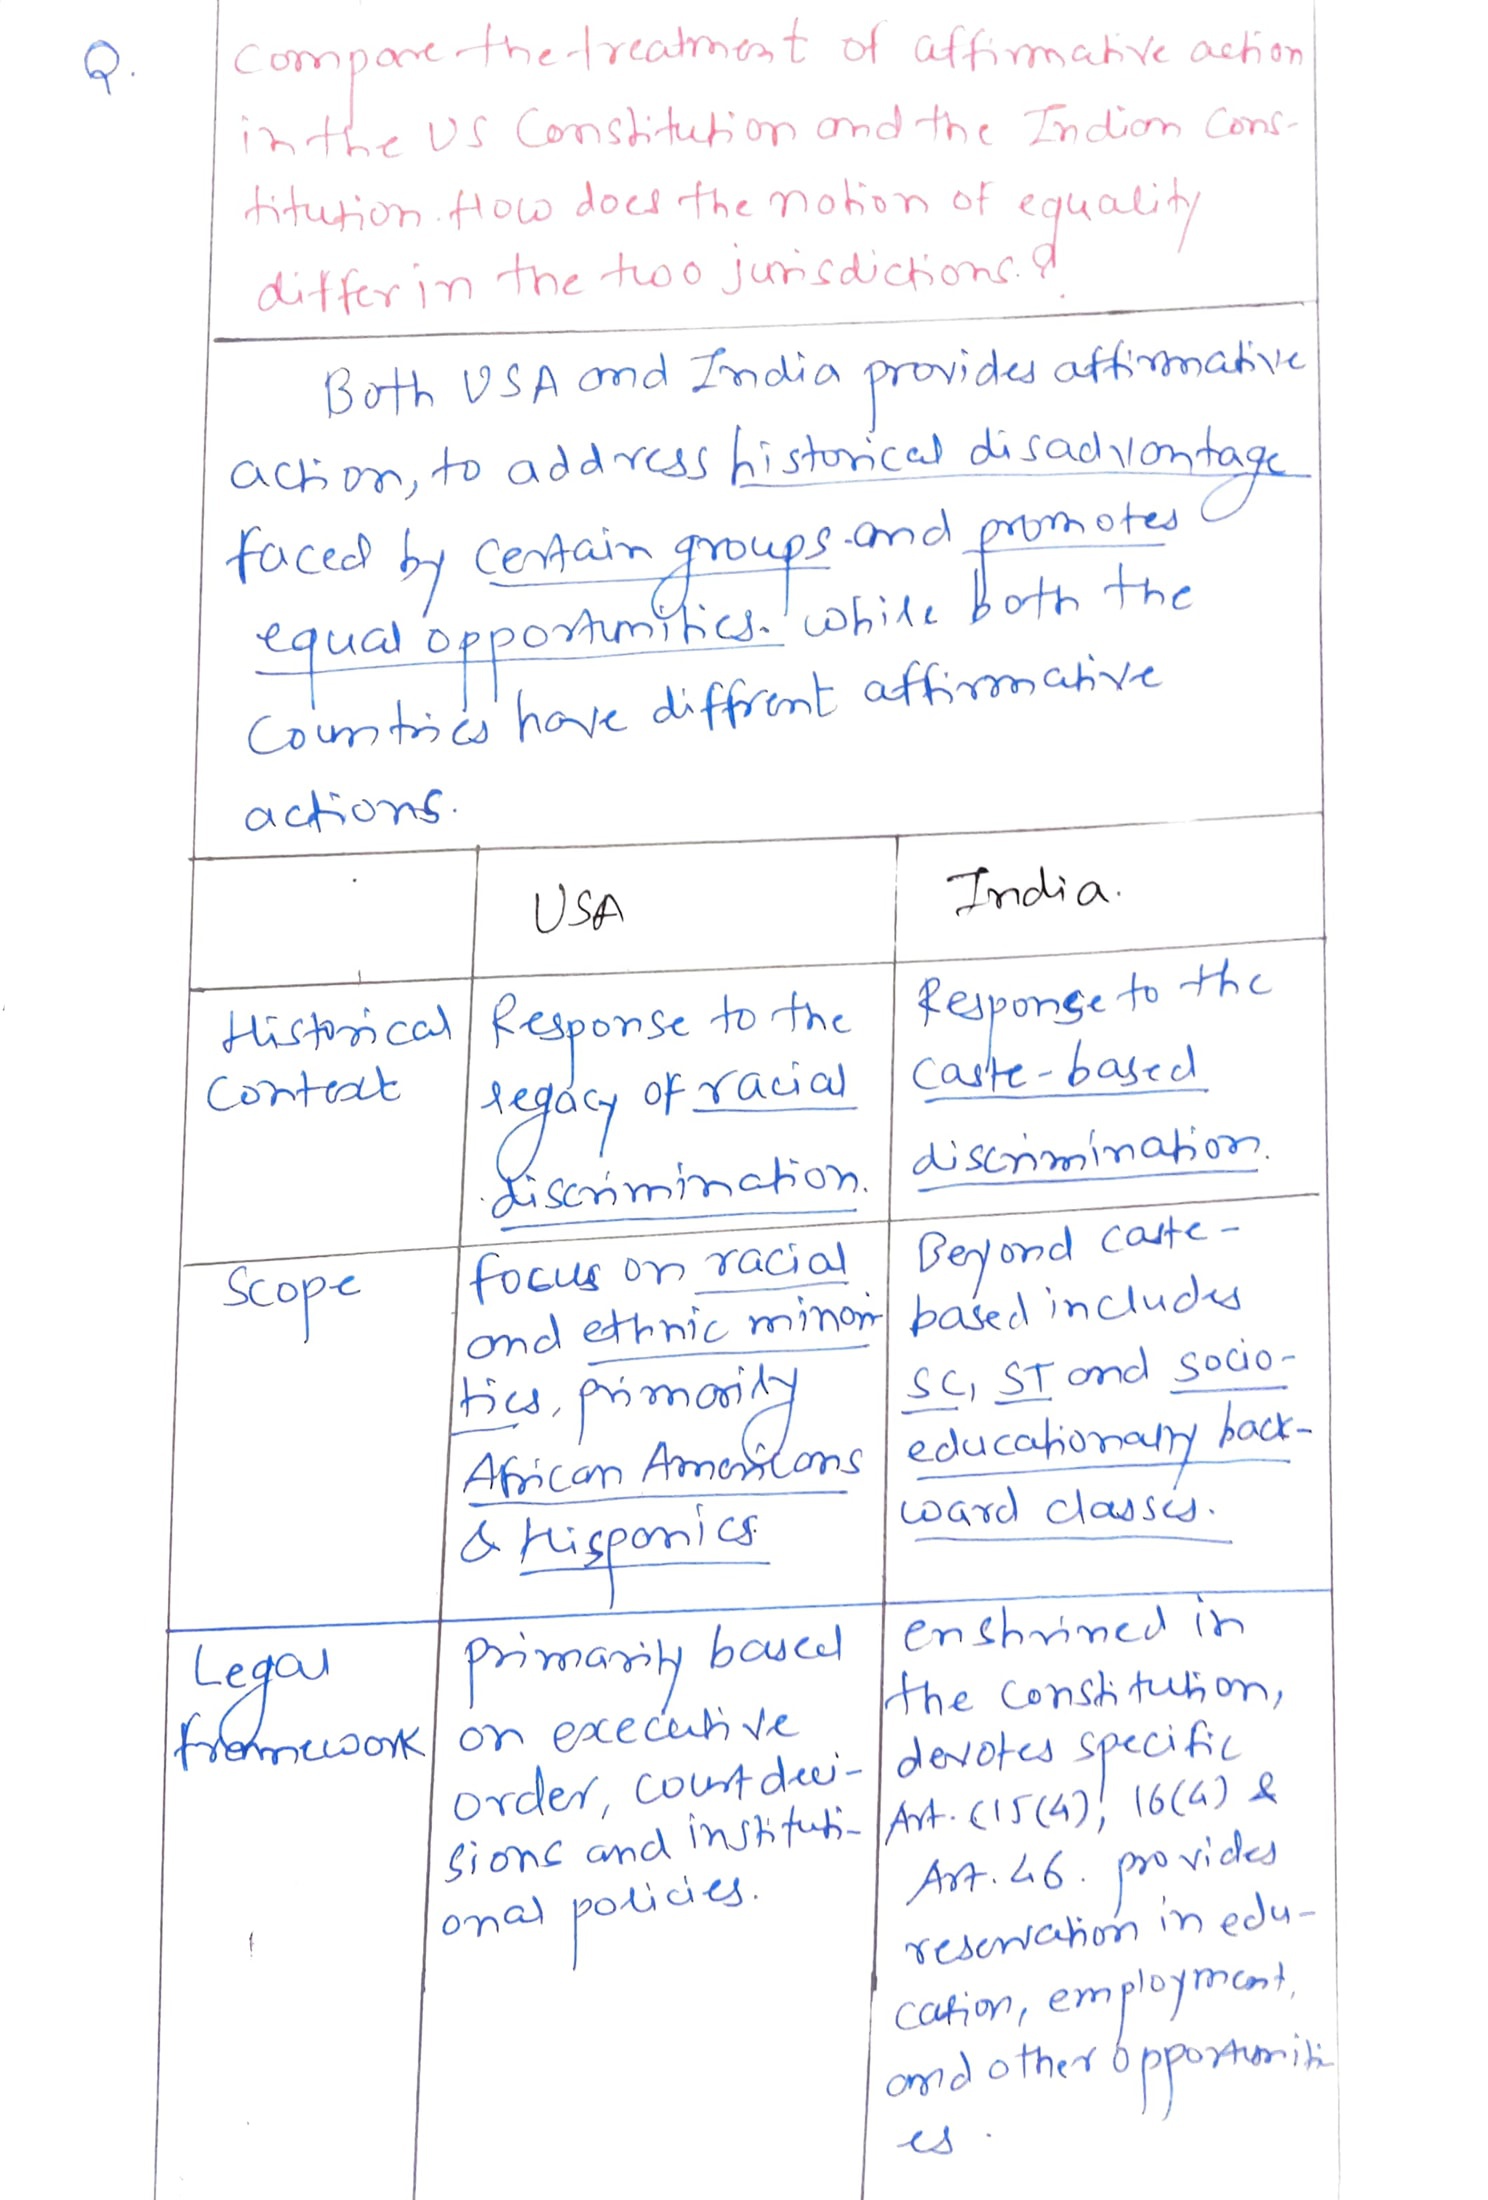 Q.
Compare the treatment of affirmative action
in the US Constitution and the Indian Cons-
titution. How does the notion of equality
differ in the two jurisdictions.?
Both USA and India provides affirmative
action, to address historical disadvantage
faced by certain groups and promotes
equal opportunities. while both the
Countries have diffrent affirmative
actions.
USA
India.
Historical
Context
Response to the
legacy of racial
discrimination.
Response to the
caste-based
discrimination.
Scope
focus on racial
and ethnic minori
ties, primarily
African Americans
& Hispanics
Beyond caste-
based includes
SC, ST and socio-
educationally back-
ward classes.
Legal
framework
primarily based
on executive
order, court deci-
sions and instituti-
onal policies.
enshrined in
the constitution,
devotes specific
Art. (15(4), 16(4) &
Art. 46. provides
reservation in edu-
cation, employment,
and other opportuniti
es.